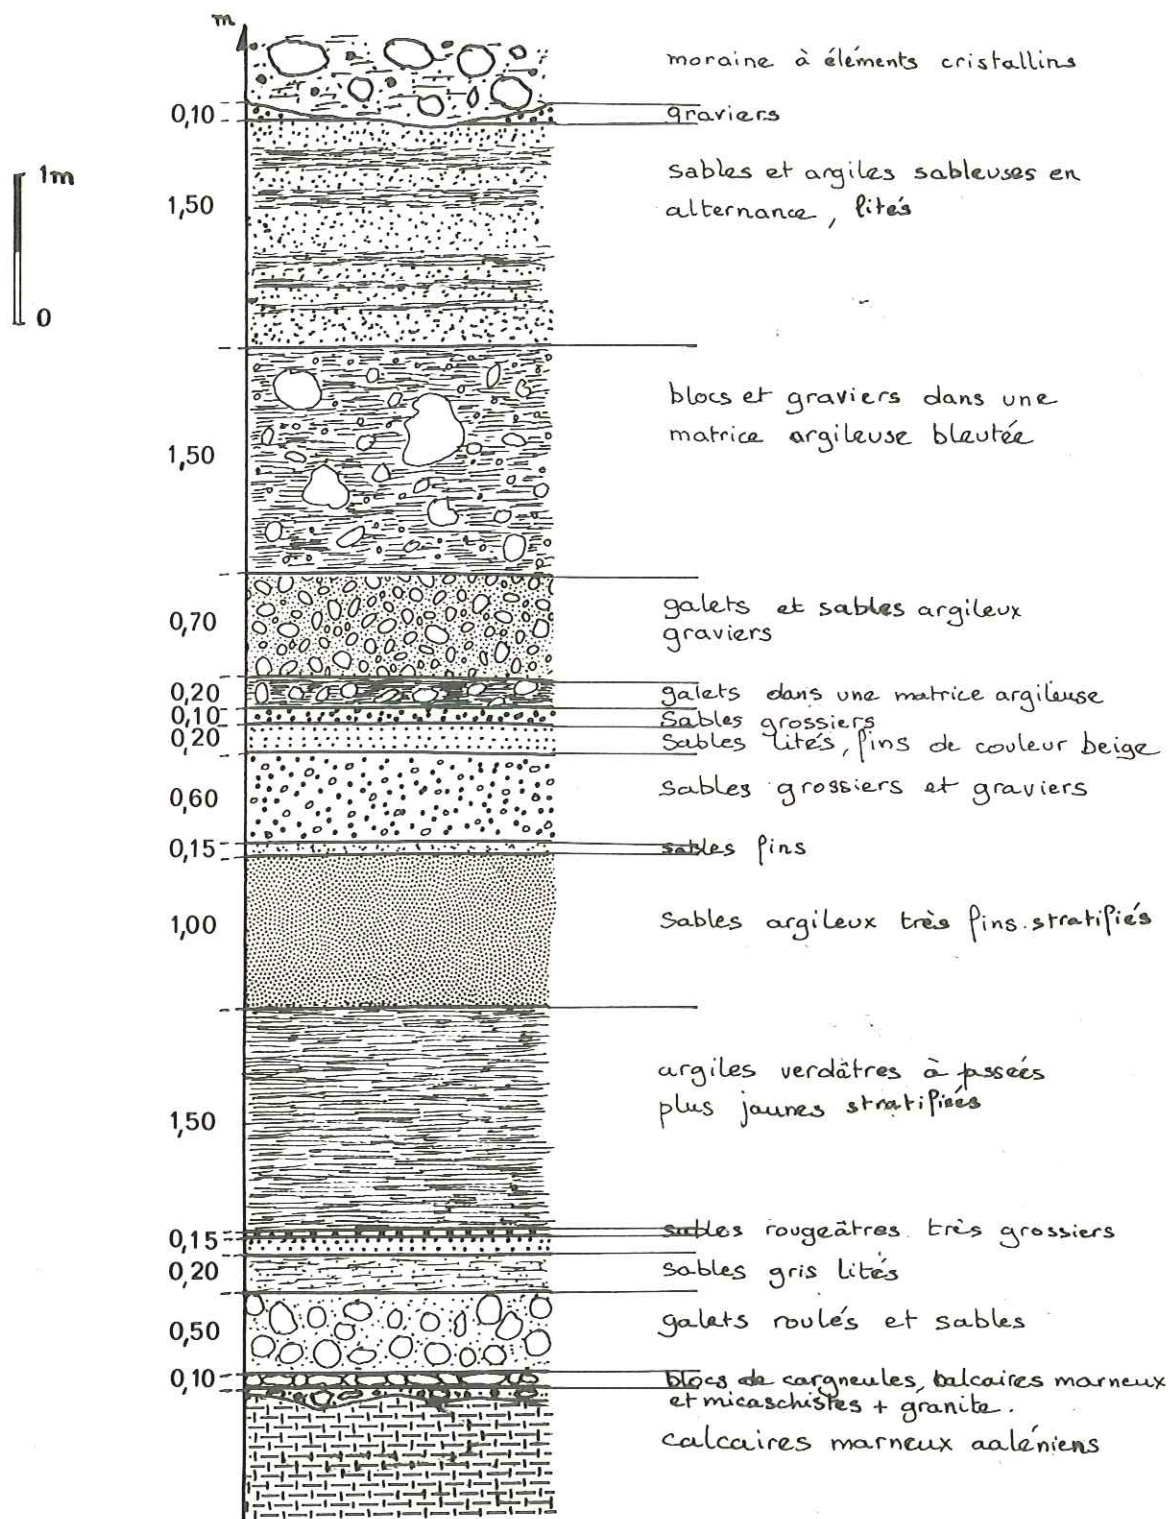 m
moraine à éléments cristallins
0,10
graviers
1m
0
1,50
sables et argiles sableuses en
alternance, lités
1,50
blocs et graviers dans une
matrice argileuse bleutée
0,70
galets et sables argileux
graviers
0,20
galets dans une matrice argileuse
0,10
Sables grossiers
0,20
Sables lités, fins de couleur beige
0,60
sables grossiers et graviers
0,15
sables fins
1,00
Sables argileux très fins stratifiés
1,50
argiles verdâtres à passées
plus jaunes stratifiées
0,15
sables rougeâtres très grossiers
0,20
sables gris lités
0,50
galets roulés et sables
0,10
blocs de cargneules, calcaires marneux
et micaschistes + granite.
calcaires marneux aaléniens